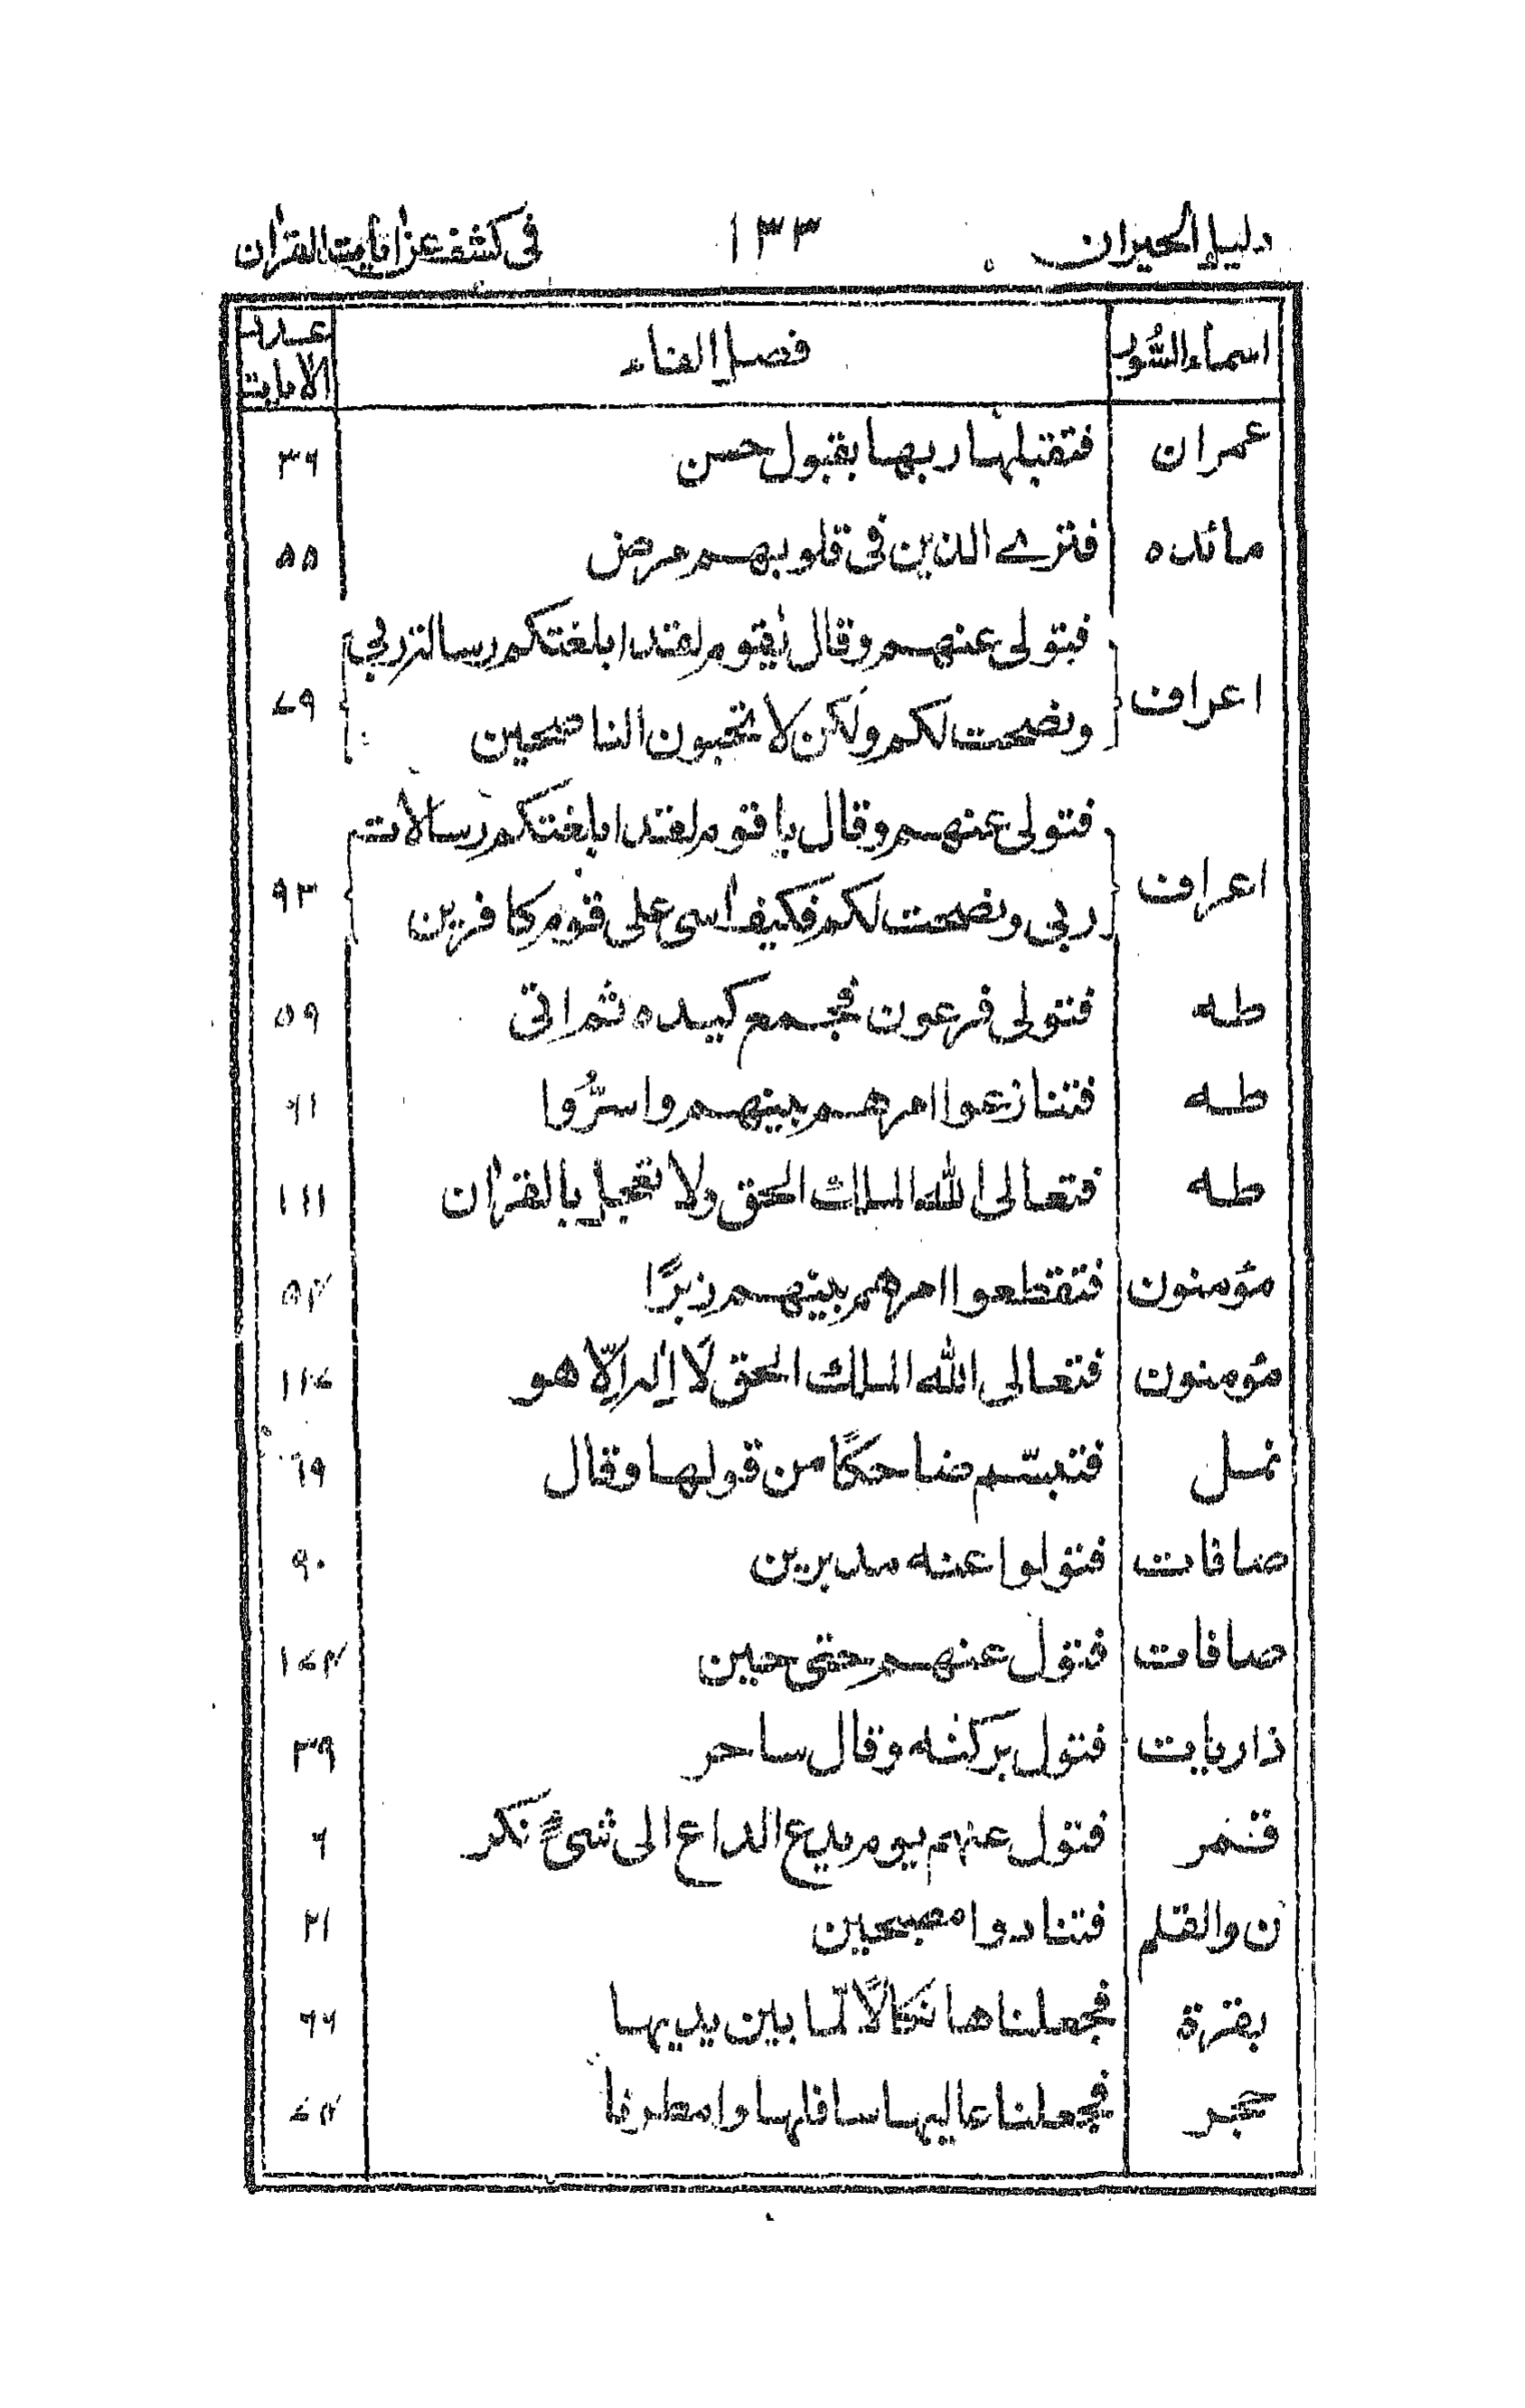 دليل الحيران ١٣٣ في كشف عن ايات القران
اسماء السُّور فصل الفاء عدد الايات
عمران فتقبلها ربها بقبول حسن ٣٦
مائده فترے الذين في قلوبهم مرض ٥٥
فتولى عنهم وقال يٰقوم لقد ابلغتكم رسالة ربي
اعراف ونصحت لكم ولكن لا تحبون الناصحين ٧٩
فتولى عنهم وقال يا قوم لقد ابلغتكم رسالات
اعراف ربي ونصحت لكم فكيف اٰسى على قوم كافرين ٩٣
طه فتولى فرعون فجمع كيده ثم اتى ٥٩
طه فتنازعوا امرهم بينهم واسرُّوا ٦١
طه فتعالى الله الملك الحق ولا تعجل بالقراٰن ١١١
مؤمنون فتقطعوا امرهم بينهم زبرًا ٥٢
مؤمنون فتعالى الله الملك الحق لا اِلٰه اِلّا هو ١١٧
نمل فتبسّم ضاحكًا من قولها وقال ١٩
صافات فتولوا عنه مدبرين ٩٠
صافات فتول عنهم حتى حين ١٧٤
ذاريات فتول بركنه وقال ساحر ٣٩
قمر فتول عنهم يوم يدع الداع الى شئ نكر ٦
ن والقلم فتنادوا مصبحين ٢١
بقرة فجعلناها نكالًا لّما بين يديها ٦٦
حجر فجعلنا عاليها سافلها وامطرنا ٧٤